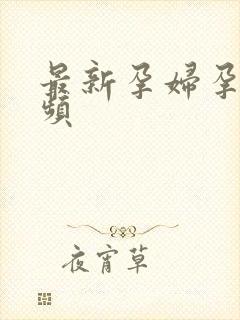 最新孕婦孕
頻
夜宵草